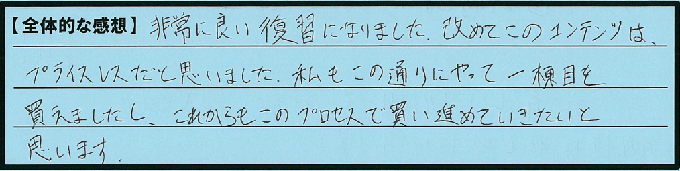 【全体的な感想】非常に良い復習になりました。改めてこのコンテンツは、
プライスレスだと思いました。私もこの通りにやって一棟目を
買えましたし、これからもこのプロセスで買い進めていきたいと
思います。